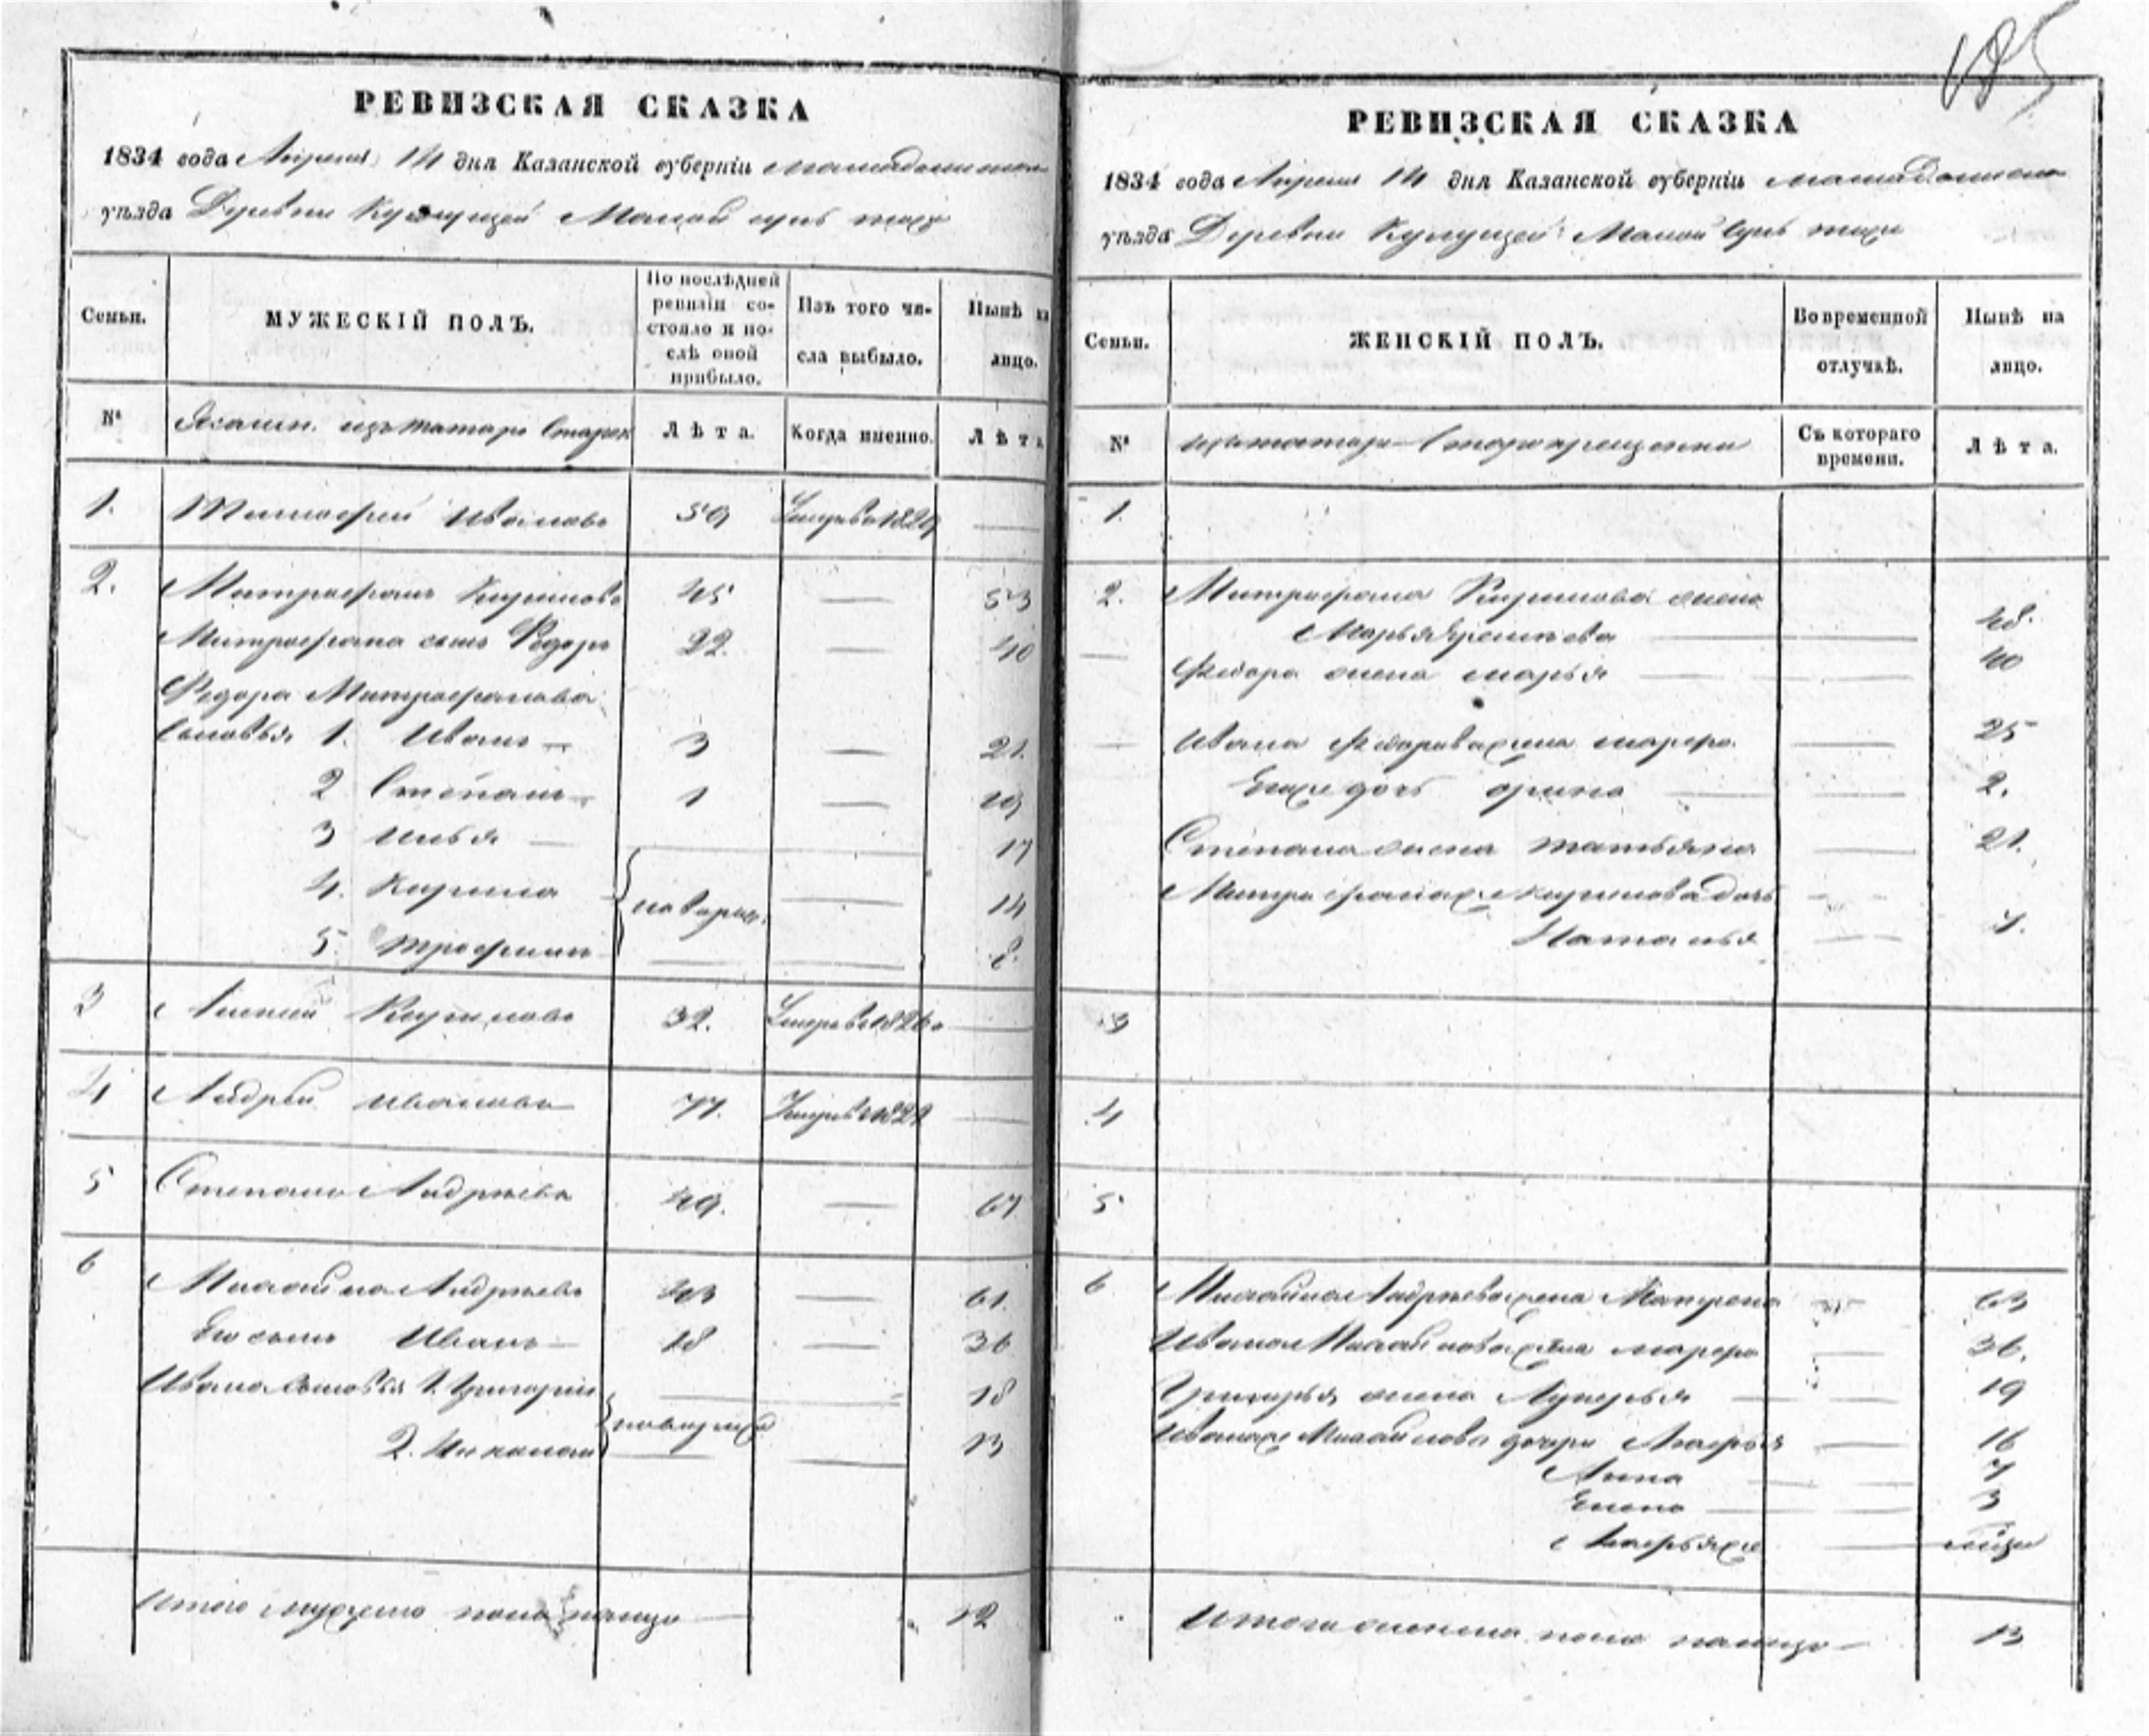 185
РЕВИЗСКАЯ СКАЗКА
1834 года Апреля 14 дня Казанской губерніи
уѣзда Деревни
Семьи.
МУЖЕСКІЙ ПОЛЪ.
По послѣдней ревизіи состояло и послѣ оной прибыло.
Изъ того числа выбыло.
Нынѣ на лицо.
№
изъ татаръ Старок
Лѣта.
Когда именно.
Лѣта
1. Тимофей Ивановъ 59 —
2. Митрофанъ Кириловъ 45 — 53
Митрофана сынъ Федоръ 22 — 40
Федора Митрофанова
сыновья 1. Иванъ — 3 — 21.
2 Степанъ 1 — 19
3 Илья — 17
4. Кирила — 14
5 Трофимъ — 8.
3 Кириловъ 32. —
4 Андрей Ивановъ 77. —
5 Степанъ Андреевъ 49. — 67
6 Михайла Андреевъ 43 — 61.
Его сынъ Иванъ — 18 — 36
Ивана сыновья 1. Григорий 18
2. Николай — 13
Итого мужеска пола налицо — 12
РЕВИЗСКАЯ СКАЗКА
1834 года Апреля 14 дня Казанской губерніи
уѣзда Деревни
Семьи.
ЖЕНСКІЙ ПОЛЪ.
Во временной отлучкѣ.
Нынѣ на лицо.
№
изъ татаръ Старокрещенки
Съ котораго времени.
Лѣта.
1.
2. Митрофана Кирилова жена
Марья — 48.
Федора жена Марья — 40
Ивана Федорова жена Марфа — 25
Ея же дочь Орина — 2.
Степана жена Татьяна — 21.
Митрофана же Кирилова дочь
Наталья — 7.
3
4
5
6 Михайла Андреева жена Матрена 63
Ивана Михайлова жена Марфа — 36.
Григорья жена Лукерья — 19
Ивана же Михайлова дочери — 16
Анна — 7
Елена — 3
Итого женска пола налицо — 13